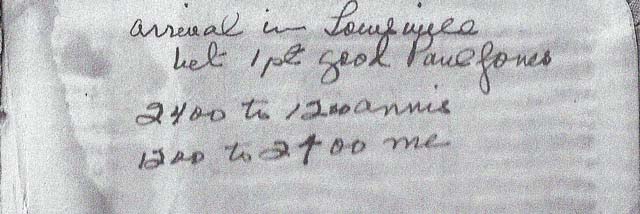 arrival in Louisville
let 1 pt good Paul Jones
2400 to 1200 annis
1200 to 2400 me